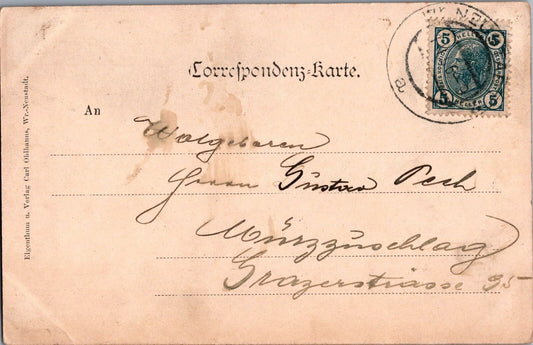 Correspondenz-Karte.
An
Wolgeboren
Herrn Gustav Pech
Mürzzuschlag
Grazerstrasse 95
Eigenthum u. Verlag Carl Oblhanns, Wr.-Neustadt.
5 5
5 5
a